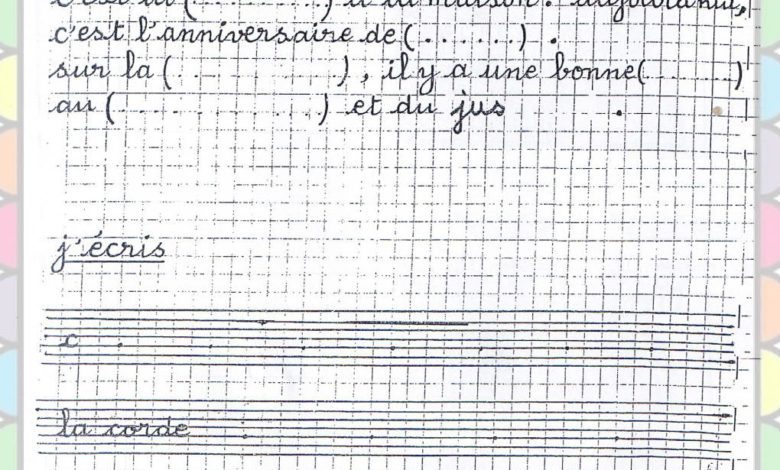 c'est la (. . . . . . . .) à la maison. aujourd'hui,
c'est l'anniversaire de (. . . . . . .) .
sur la (. . . . . . . . . .) , il y a une bonne (. . . . . . .)
au (. . . . . . . . . . . .) et du jus .
j'écris
c
la corde